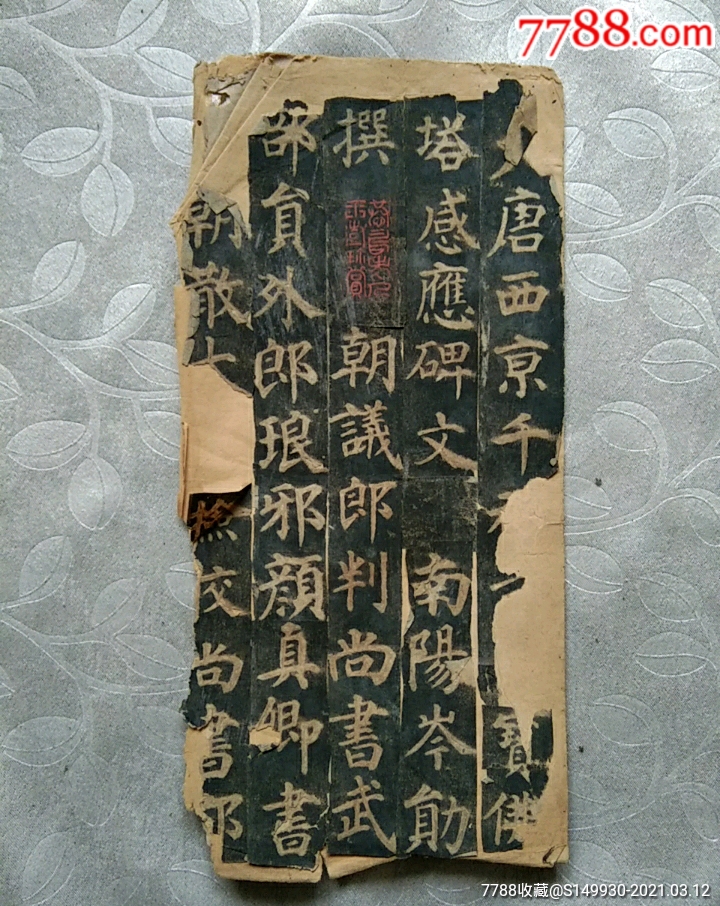 7788.com
唐西京千寶佛
塔感應碑文 南陽岑勛
撰 朝議郎判尚書武
部員外郎琅邪顏真卿書
朝散挍尚書
7788收藏@S149930-2021.03.12